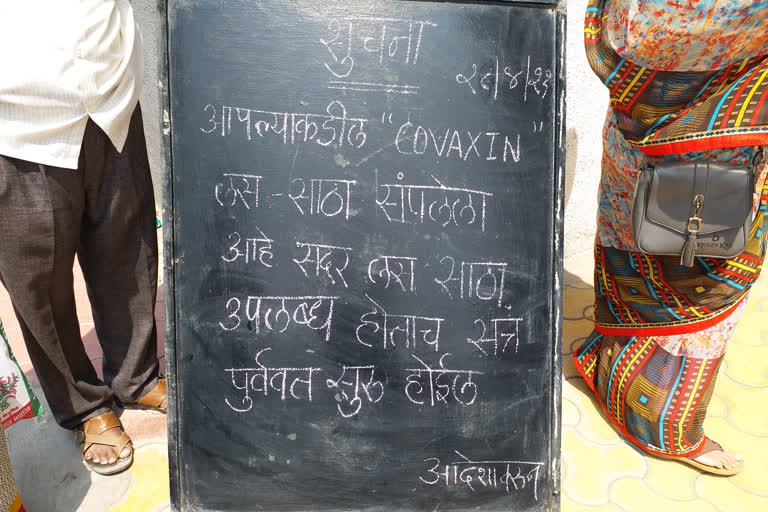 सुचना
२८/४/२१
आपल्याकडील "COVAXIN"
लस - साठा संपलेला
आहे सदर लस साठा
उपलब्ध होताच सत्र
पुर्ववत सुरु होईल
आदेशावरून